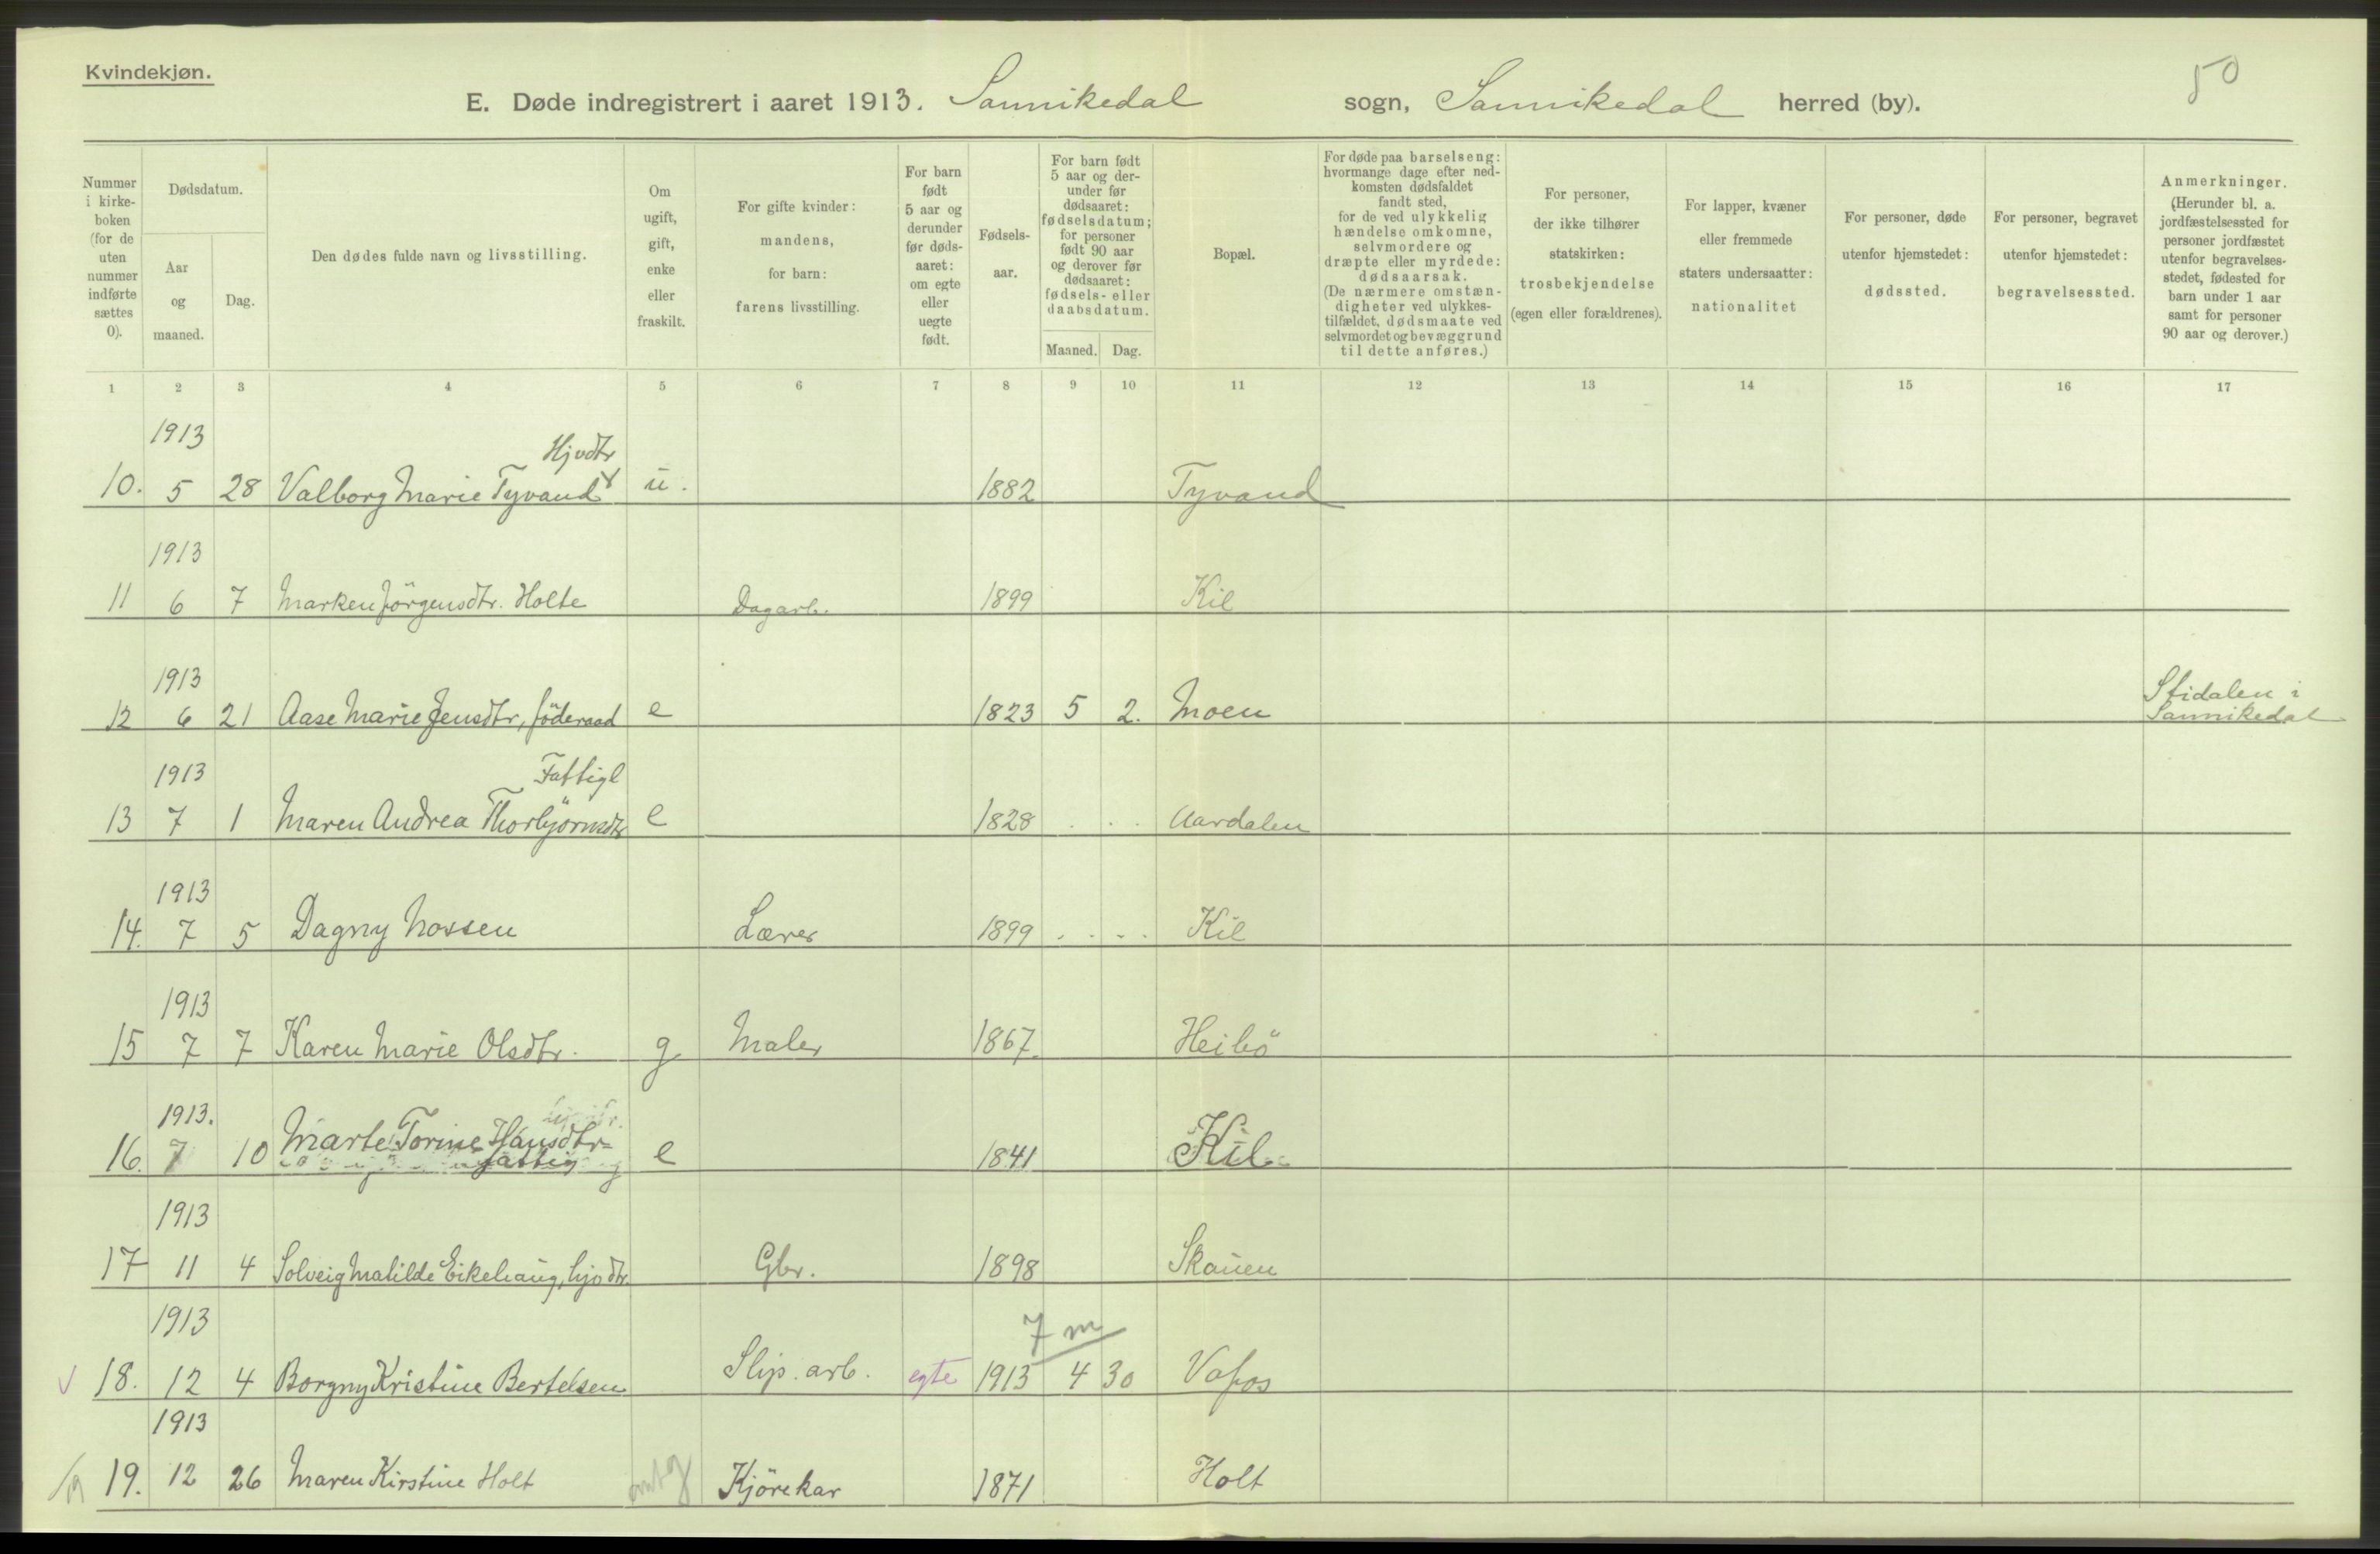 Kvindekjøn.
50
E. Døde indregistrert i aaret 1913. Sannikedal sogn, Sannikedal herred (by).
Nummer i kirke- boken (for de uten nummer indførte sættes 0).
Dødsdatum.
Aar og maaned.
Dag.
Den dødes fulde navn og livsstilling.
Om ugift, gift, enke eller fraskilt.
For gifte kvinder: mandens, for barn: farens livsstilling.
For barn født 5 aar og derunder før døds- aaret: om egte eller uegte født.
Fødsels- aar.
For barn født 5 aar og der- under før dødsaaret: fødselsdatum; for personer født 90 aar og derover før dødsaaret: fødsels- eller daabsdatum.
Maaned. Dag.
Bopæl.
For døde paa barselseng: hvormange dage efter ned- komsten dødsfaldet fandt sted, for de ved ulykkelig hændelse omkomne, selvmordere og dræpte eller myrdede: dødsaarsak. (De nærmere omstæn- digheter ved ulykkes- tilfældet, dødsmaate ved selvmordet og bevæggrund til dette anføres.)
For personer, der ikke tilhører statskirken: trosbekjendelse (egen eller forældrenes).
For lapper, kvæner eller fremmede staters undersaatter: nationalitet
For personer, døde utenfor hjemstedet: dødssted.
For personer, begravet utenfor hjemstedet: begravelsessted.
Anmerkninger. (Herunder bl. a. jordfæstelsessted for personer jordfæstet utenfor begravelses- stedet, fødested for barn under 1 aar samt for personer 90 aar og derover.)
1 2 3 4 5 6 7 8 9 10 11 12 13 14 15 16 17
1913 Hjvdtr
10. 5 28 Valborg Marie Tyvand u. 1882 Tyvand
1913
11 6 7 Marken Jörgensdtr. Holte Dagarb. 1899 Kil
1913 Stidalen i
12 6 21 Aase Marie Jensdtr, föderaad e 1823 5 2. Moen Sannikedal
1913 Fattigl
13 7 1 Maren Andrea Thorbjörnsdtr e 1828 Aardalen
1913
14. 7 5 Dagny Nossen Lærer 1899 Kil
1913
15 7 7 Karen Marie Olsdtr. g Maler 1867. Heibö
1913.
16. 7 10 Marte Torine Hansdtr- e 1841 Kil
fattig
1913
17 11 4 Solveig Matilde Eikehaug, hjvdtr. Gbr. 1898 Skauen
1913 7 m
18. 12 4 Borgny Kristine Bertelsen Slip. arb. egte 1913 4 30 Vafos
1913
19. 12 26 Maren Kirstine Holt g Kjörekar 1871 Holt